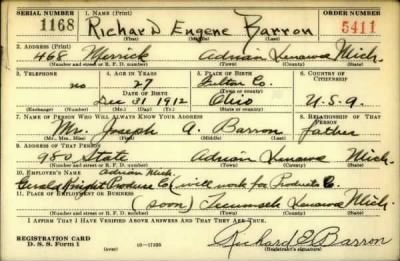 SERIAL NUMBER 1. NAME (Print) ORDER NUMBER
1168 Richard Eugene Barron 5411
(First) (Middle) (Last)
2. ADDRESS (Print)
468 Merrick Adrian Lenawee Mich.
(Number and street or R. F. D. number) (Town) (County) (State)
3. TELEPHONE 4. AGE IN YEARS 5. PLACE OF BIRTH 6. COUNTRY OF CITIZENSHIP
no 27 Fulton Co.
DATE OF BIRTH (Town or county)
Dec 31 1912 Ohio U.S.A.
(Exchange) (Number) (Mo.) (Day) (Yr.) (State or country)
7. NAME OF PERSON WHO WILL ALWAYS KNOW YOUR ADDRESS 8. RELATIONSHIP OF THAT PERSON
Mr. Joseph A. Barron father
(Mr., Mrs., Miss) (First) (Middle) (Last)
9. ADDRESS OF THAT PERSON
980 State Adrian Lenawee Mich.
(Number and street or R. F. D. number) (Town) (County) (State)
10. EMPLOYER'S NAME Adrian Mich.
Gerald Knight Produce Co (will work for Products Co.
11. PLACE OF EMPLOYMENT OR BUSINESS
(soon) Tecumseh Lenawee Mich.
(Number and street or R. F. D. number) (Town) (County) (State)
I AFFIRM THAT I HAVE VERIFIED ABOVE ANSWERS AND THAT THEY ARE TRUE.
REGISTRATION CARD
D. S. S. Form 1 (over) Richard E Barron
(Registrant's signature)